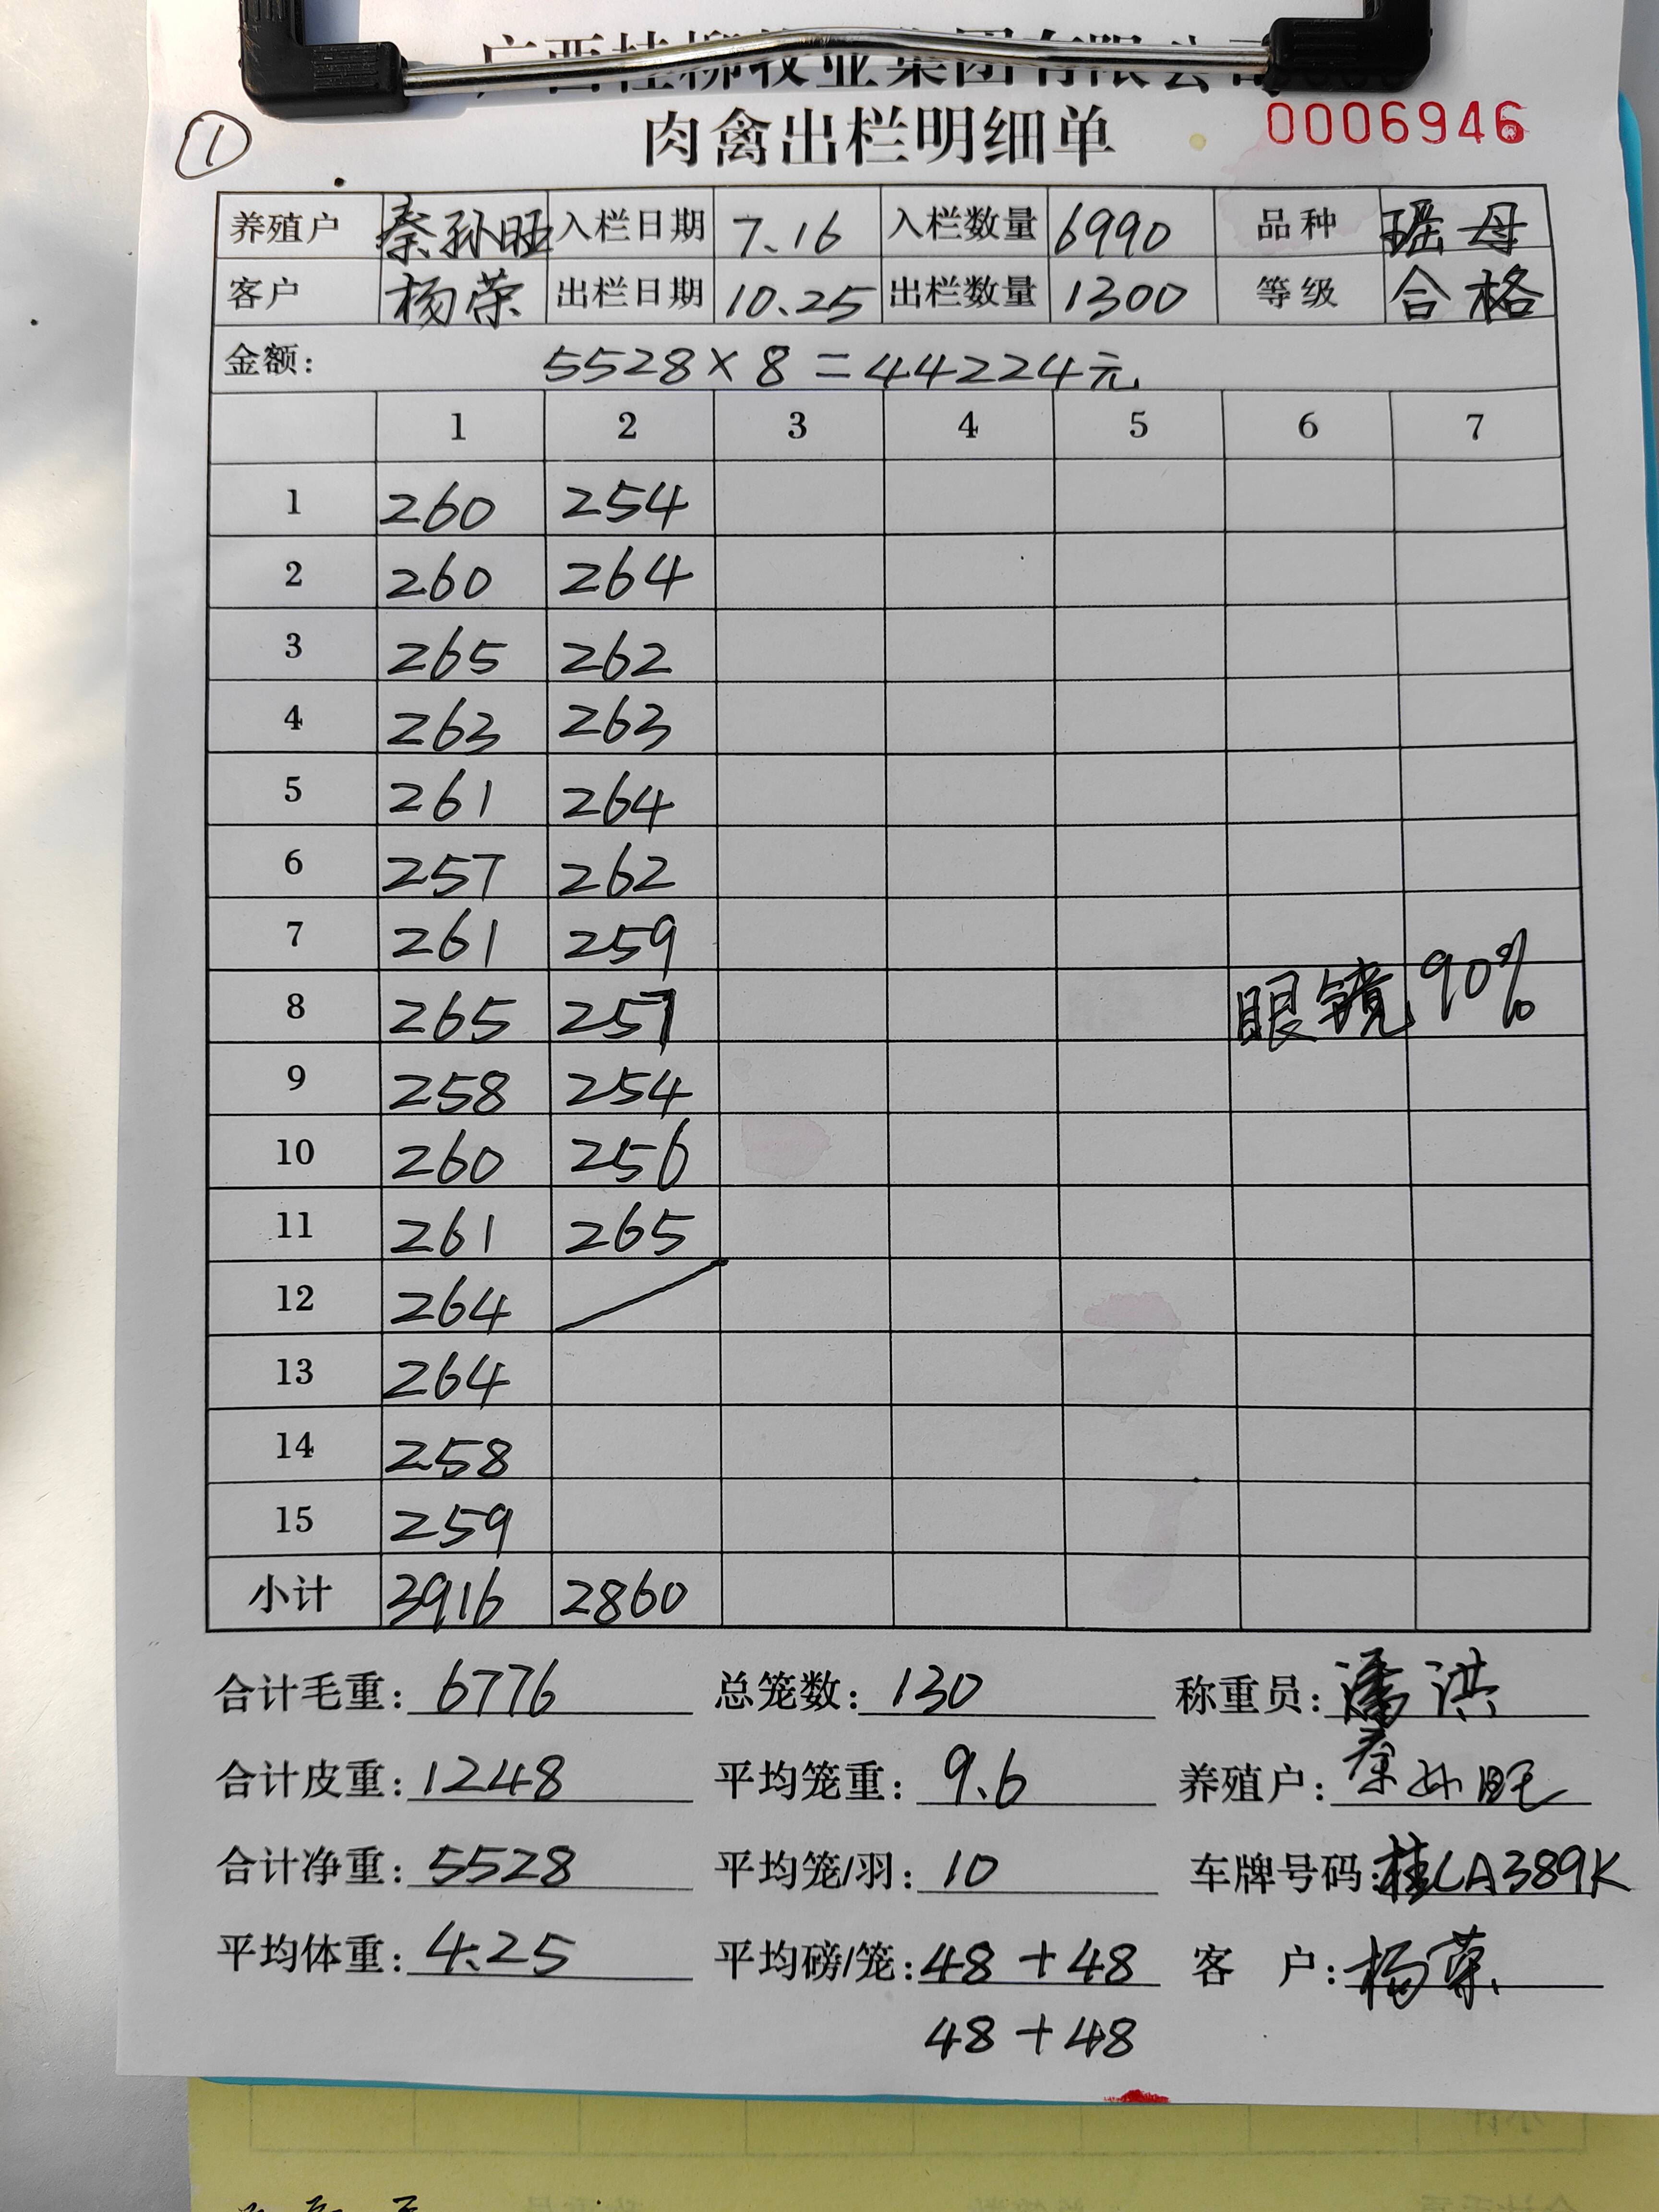 广西桂柳牧业集团有限公司
肉禽出栏明细单
0006946
①
养殖户 秦孙旺 入栏日期 7.16 入栏数量 6990 品种 瑶母
客户 杨荣 出栏日期 10.25 出栏数量 1300 等级 合格
金额: 5528×8=44224元
1 2 3 4 5 6 7
1 260 254
2 260 264
3 265 262
4 263 263
5 261 264
6 257 262
7 261 259
8 265 257 眼镜 90%
9 258 254
10 260 256
11 261 265
12 264
13 264
14 258
15 259
小计 3916 2860
合计毛重: 6776 总笼数: 130 称重员: 潘洪
合计皮重: 1248 平均笼重: 9.6 养殖户: 秦孙旺
合计净重: 5528 平均笼/羽: 10 车牌号码: 桂CA389K
平均体重: 4.25 平均磅/笼: 48+48 客户: 杨荣
48+48